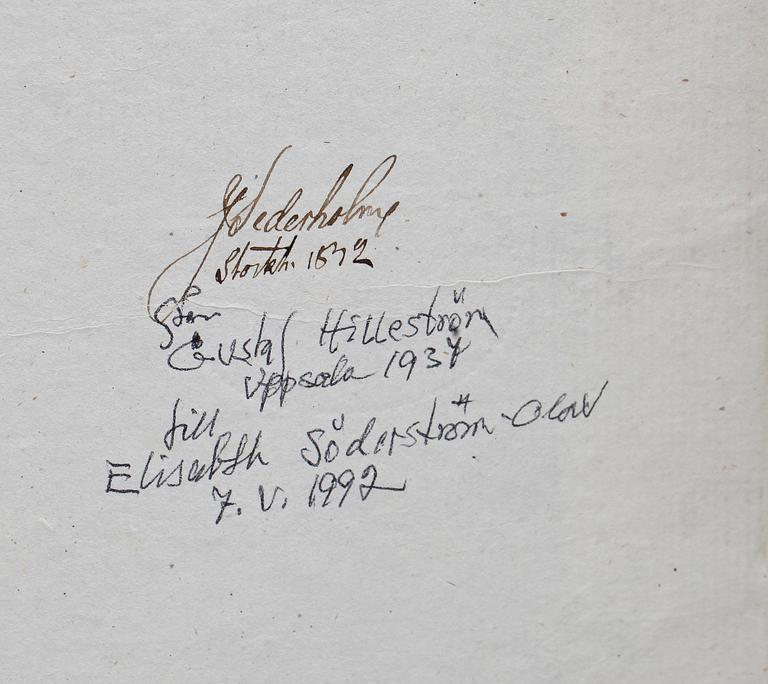 J Sederholm
Stockh. 1832
från
Gustaf Hilleström
Uppsala 1937
till
Elisabeth Söderström-Olow
7. V. 1992